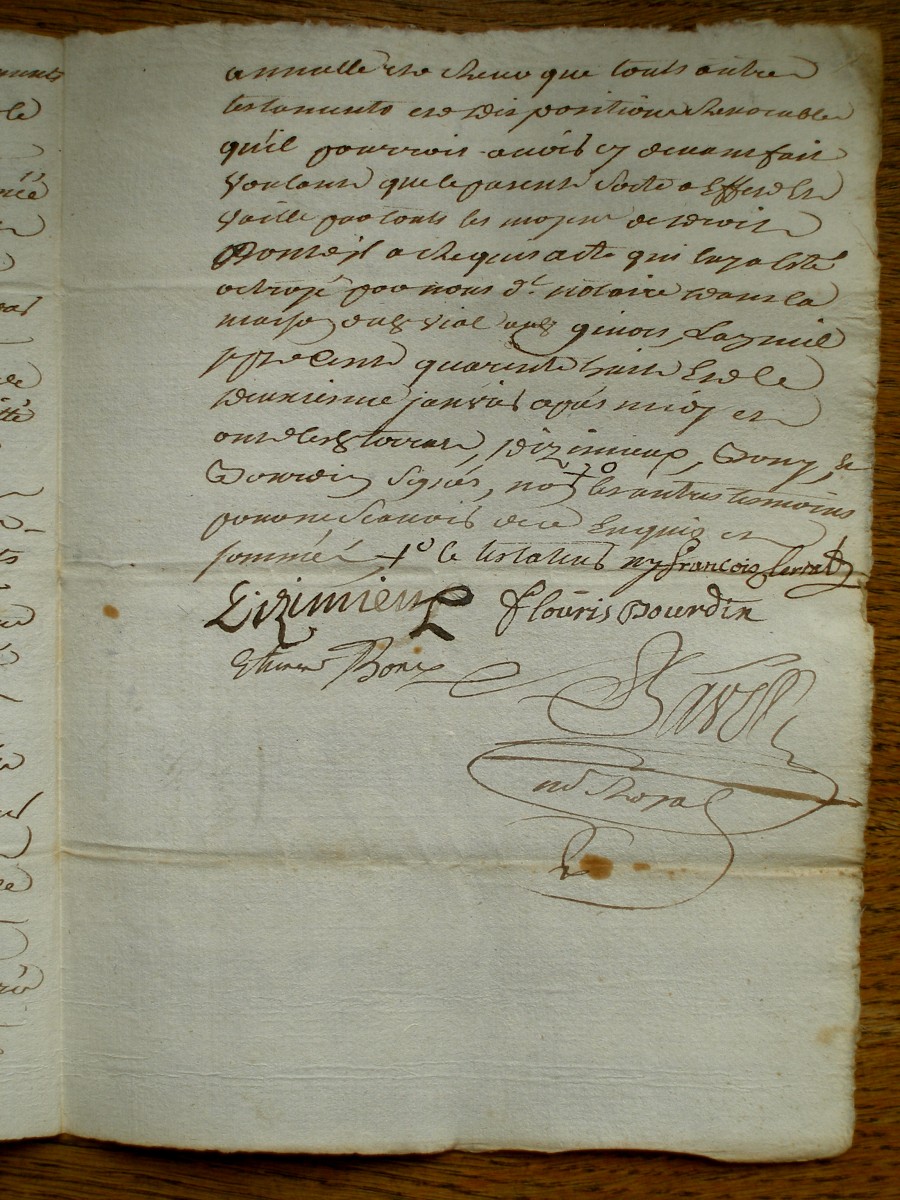 annulle et que touts autre
testaments et dispositions revocables
qu'il pourroit avoir cy devant fait
voulant que le present sorte a effet et
vaille par touts les moyens de droit
Dont il a requis acte qui luy a esté
octroyé par nous dt notaire dans la
maison dud vial aud , L'an mil
sept cent quarente huit et le
deuxieme janvier après midy et
ont lesd , dizimieux, Bony, &
Bourdin signés, non les autres temoins
pour ne scavoir de ce enquis et
sommés +o le testateur ny françois
Dizimieux flouris Bourdin
Etienne Bony
Ravel
nore Royal